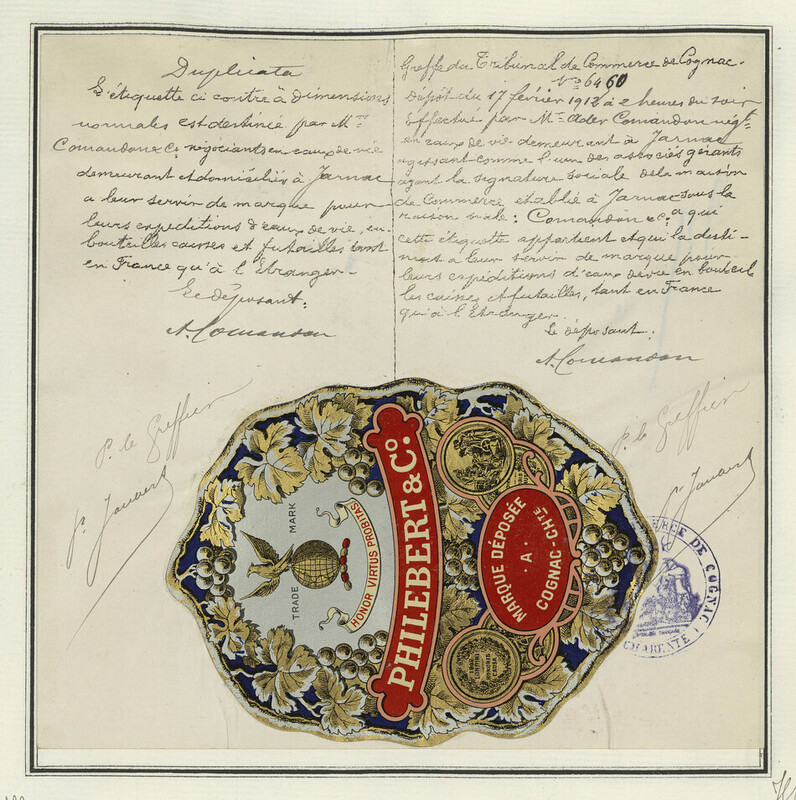 Duplicata
L'étiquette ci contre à dimensions
normales est destinée par Mrs
Comandon & Co négociants en eaux de vie
demeurant et domiciliés à Jarnac
a leur servir de marque pour
leurs expeditions d'eaux de vie, en
bouteilles caisses et futailles tant
en France qu'à l'Etranger
Le déposant:
A. Comandon
Greffe du Tribunal de Commerce de Cognac.
No 6460
Dépôt du 17 février 1912 à 2 heures du soir
Effectué par Mr Ader Comandon négt
en eaux de vie demeurant à Jarnac
agissant comme l'un des associés gérants
ayant la signature sociale de la maison
de Commerce etablie à Jarnac sous la
raison : Comandon & Co a qui
cette étiquette appartient et qui la desti-
nent a leur servir de marque pour
leurs expéditions d'eaux de vie en bouteil
les caisses et futailles, tant en France
qu'à l'Etranger.
Le déposant:
A. Comandon
P. le Greffier
P. le Greffier
TRADE MARK
HONOR VIRTUS PROBITAS
PHILEBERT & CO.
MARQUE DÉPOSÉE
· A ·
COGNAC-CHTE
DE COGNAC
CHARENTE